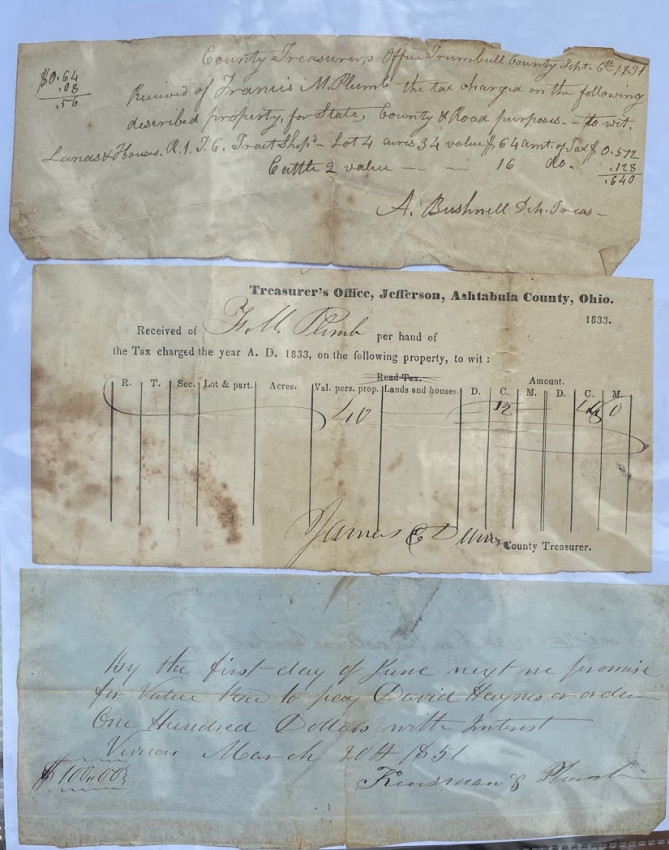 County Treasurers Office Trumbull County Sept. 6th 1831
$0.64
.08
.56
Received of Francis M. Plumb the tax charged on the following
described property, for State, County & Road purposes - to wit,
Lands & Houses. R. 1. T. 6. Lot 4 acres 34 value $64 amt. of Tax $0.512
Cattle 2 value — — 16 do - .128
.640
A. Bushnell Treas -
Treasurer's Office, Jefferson, Ashtabula County, Ohio.
1833.
Received of F. M. Plumb per hand of
the Tax charged the year A. D. 1833, on the following property, to wit :
Road Tax. Amount.
R. T. Sec. Lot & part. Acres. Val. pers. prop. Lands and houses. D. C. M. D. C. M.
40 12 0
James County Treasurer.
By the first day of June next we promise
for value to pay David Haynes or order
One Hundred Dollars with Interest
March 20th 1851
$100.00
Kinsman & Plumb